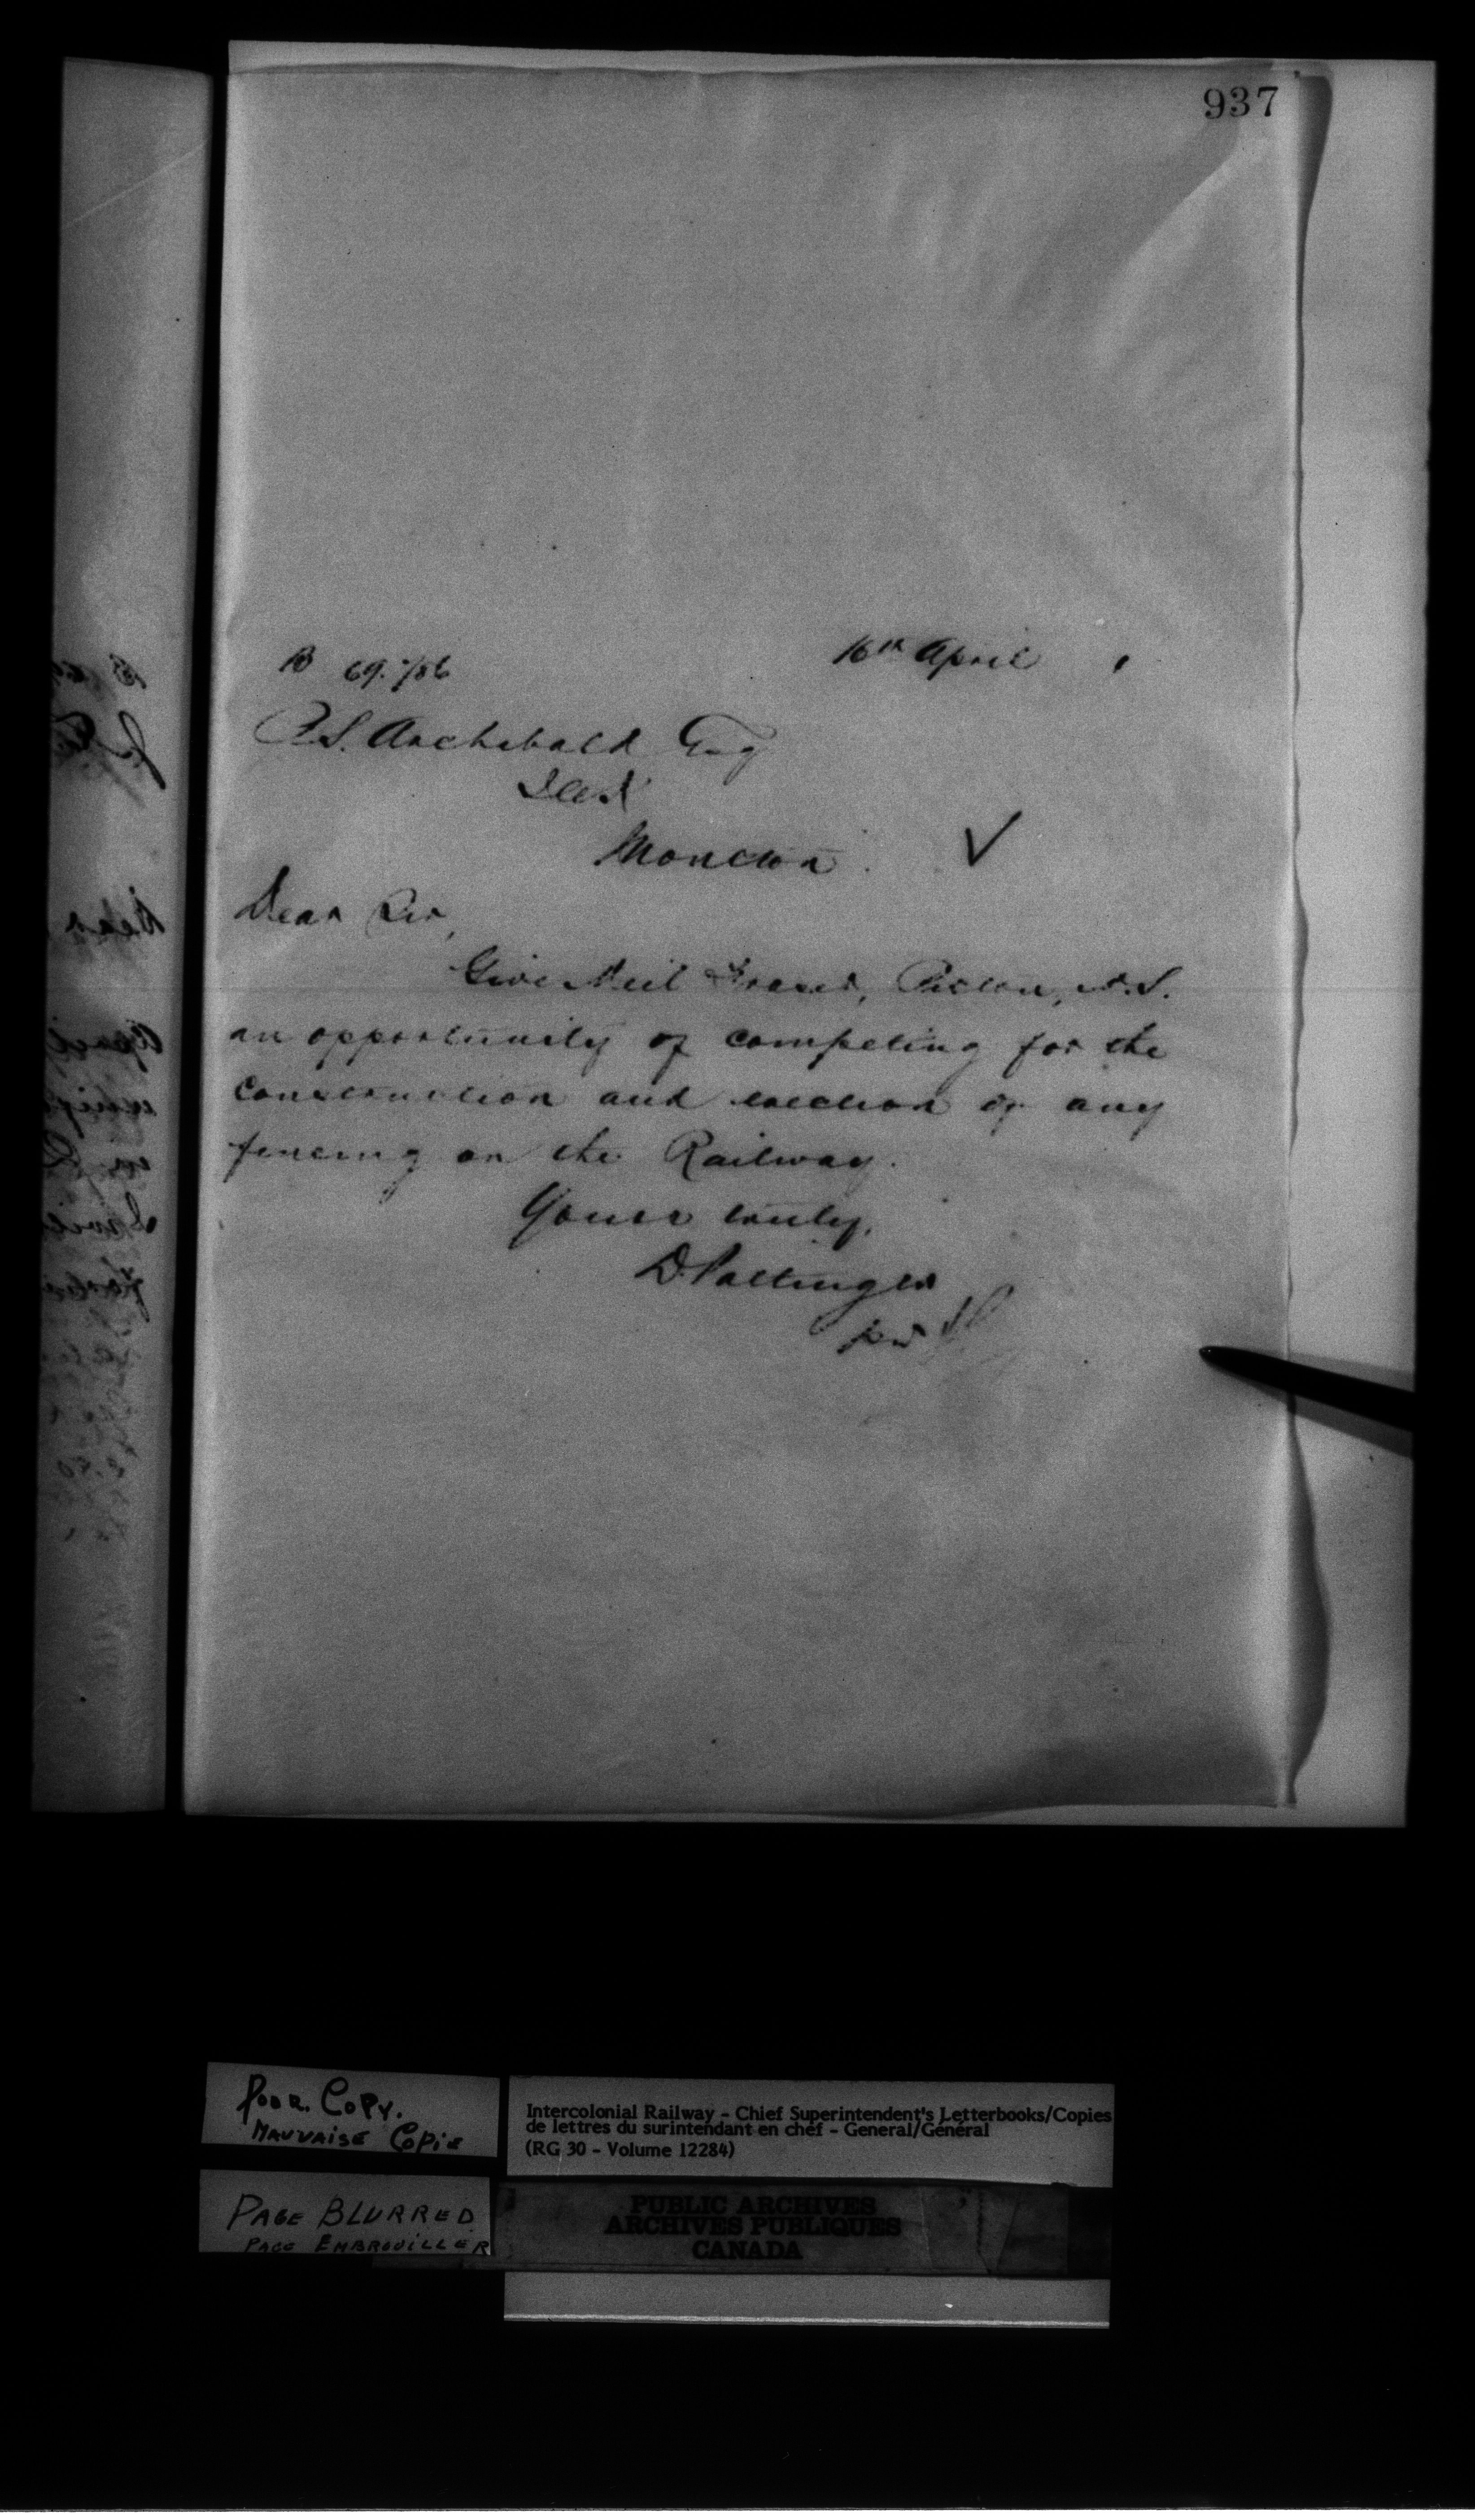 937
B 69./86 16th April
P.S. Archibald Esq
Moncton.
Dear Sir,
Give Neil Fraser, Pictou, N.S.
an opportunity of competing for the
construction and erection of any
fencing on the Railway.
Yours truly,
D. Pottinger
per
Poor Copy.
Mauvaise Copie
Intercolonial Railway - Chief Superintendent's Letterbooks/Copies
de lettres du surintendant en chef - General/Général
(RG 30 - Volume 12284)
Page Blurred
Page Embrouiller
PUBLIC ARCHIVES
ARCHIVES PUBLIQUES
CANADA